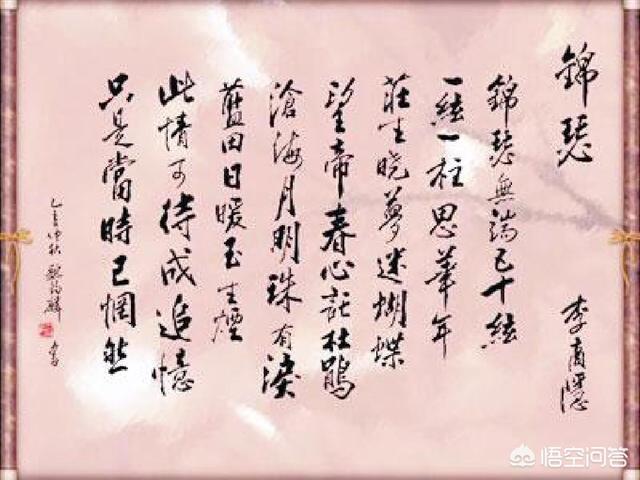 錦瑟
李商隱
錦瑟無端五十絃
一絃一柱思華年
莊生曉夢迷蝴蝶
望帝春心託杜鵑
滄海月明珠有淚
藍田日暖玉生煙
此情可待成追憶
只是當時已惘然
乙亥仲秋 書
悟空问答